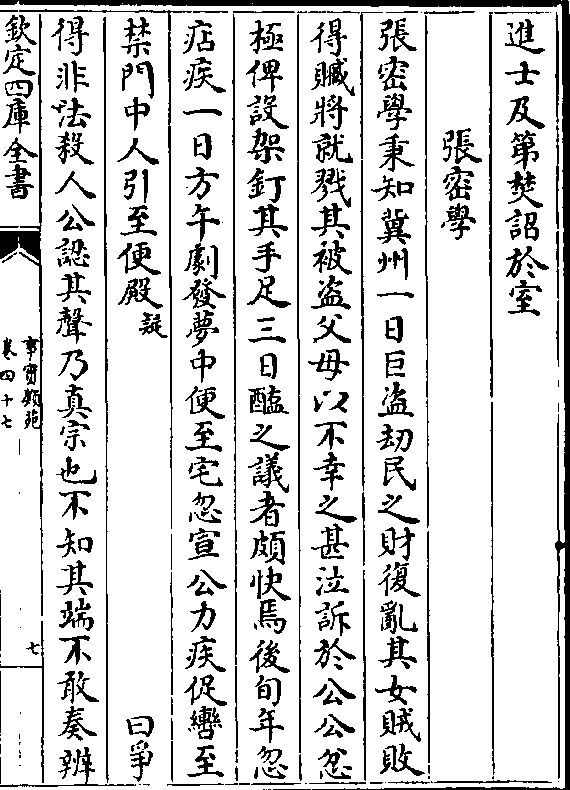 進士及第焚詔於室
張密學
張密學秉知冀州一日巨盗刼民之財復亂其女賊敗
得贓將就戮其被盗父母以不幸之甚泣訴於公公忿
極俾設架釘其手足三日醢之議者頗快焉後旬年忽
痁疾一日方午劇發夢中便至宅忽宣公力疾促轡至
禁門中人引至便殿疑曰爭
得非法殺人公認其聲乃真宗也不知其端不敢奏辨
欽定四庫全書
事實類苑
卷四十七
七